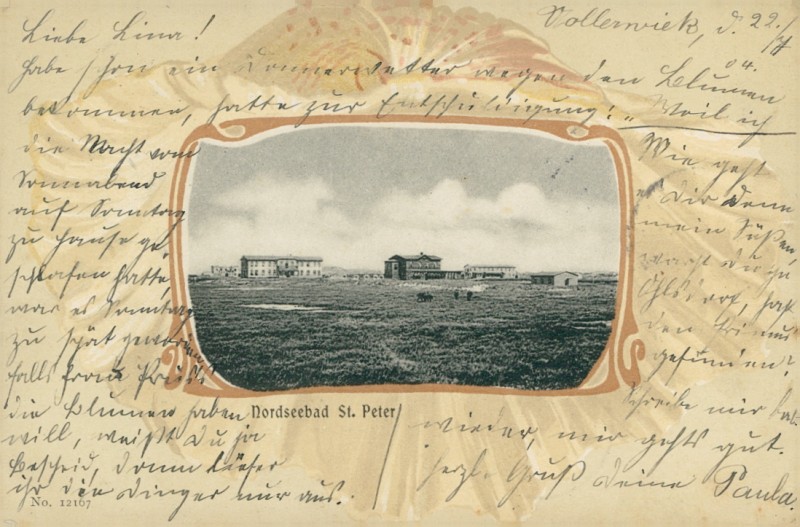 Vollerwiek, d. 22./4
04.
Liebe Lina!
Habe schon ein Donnerwetter wegen den Blumen
bekommen, hatte zur Entschuldigung: "Weil ich
die Nacht vom
Sonnabend
auf Sonntag
zu Hause ge-
schlafen hatte,
war es Sonntag
zu spät geworden"
falls Frau
die Blumen haben
will, weißt Du ja
Bescheid, dann
ihr die Dinger nur aus.
Wie geht
es Dir denn
mein Süßen,
warst Du zu
Ohlsdorf, hast
den
gefunden?
Schreibe mir bal.
wieder, mir gehts gut.
herzl. Gruß Deine Paula.
Nordseebad St. Peter
No. 12167